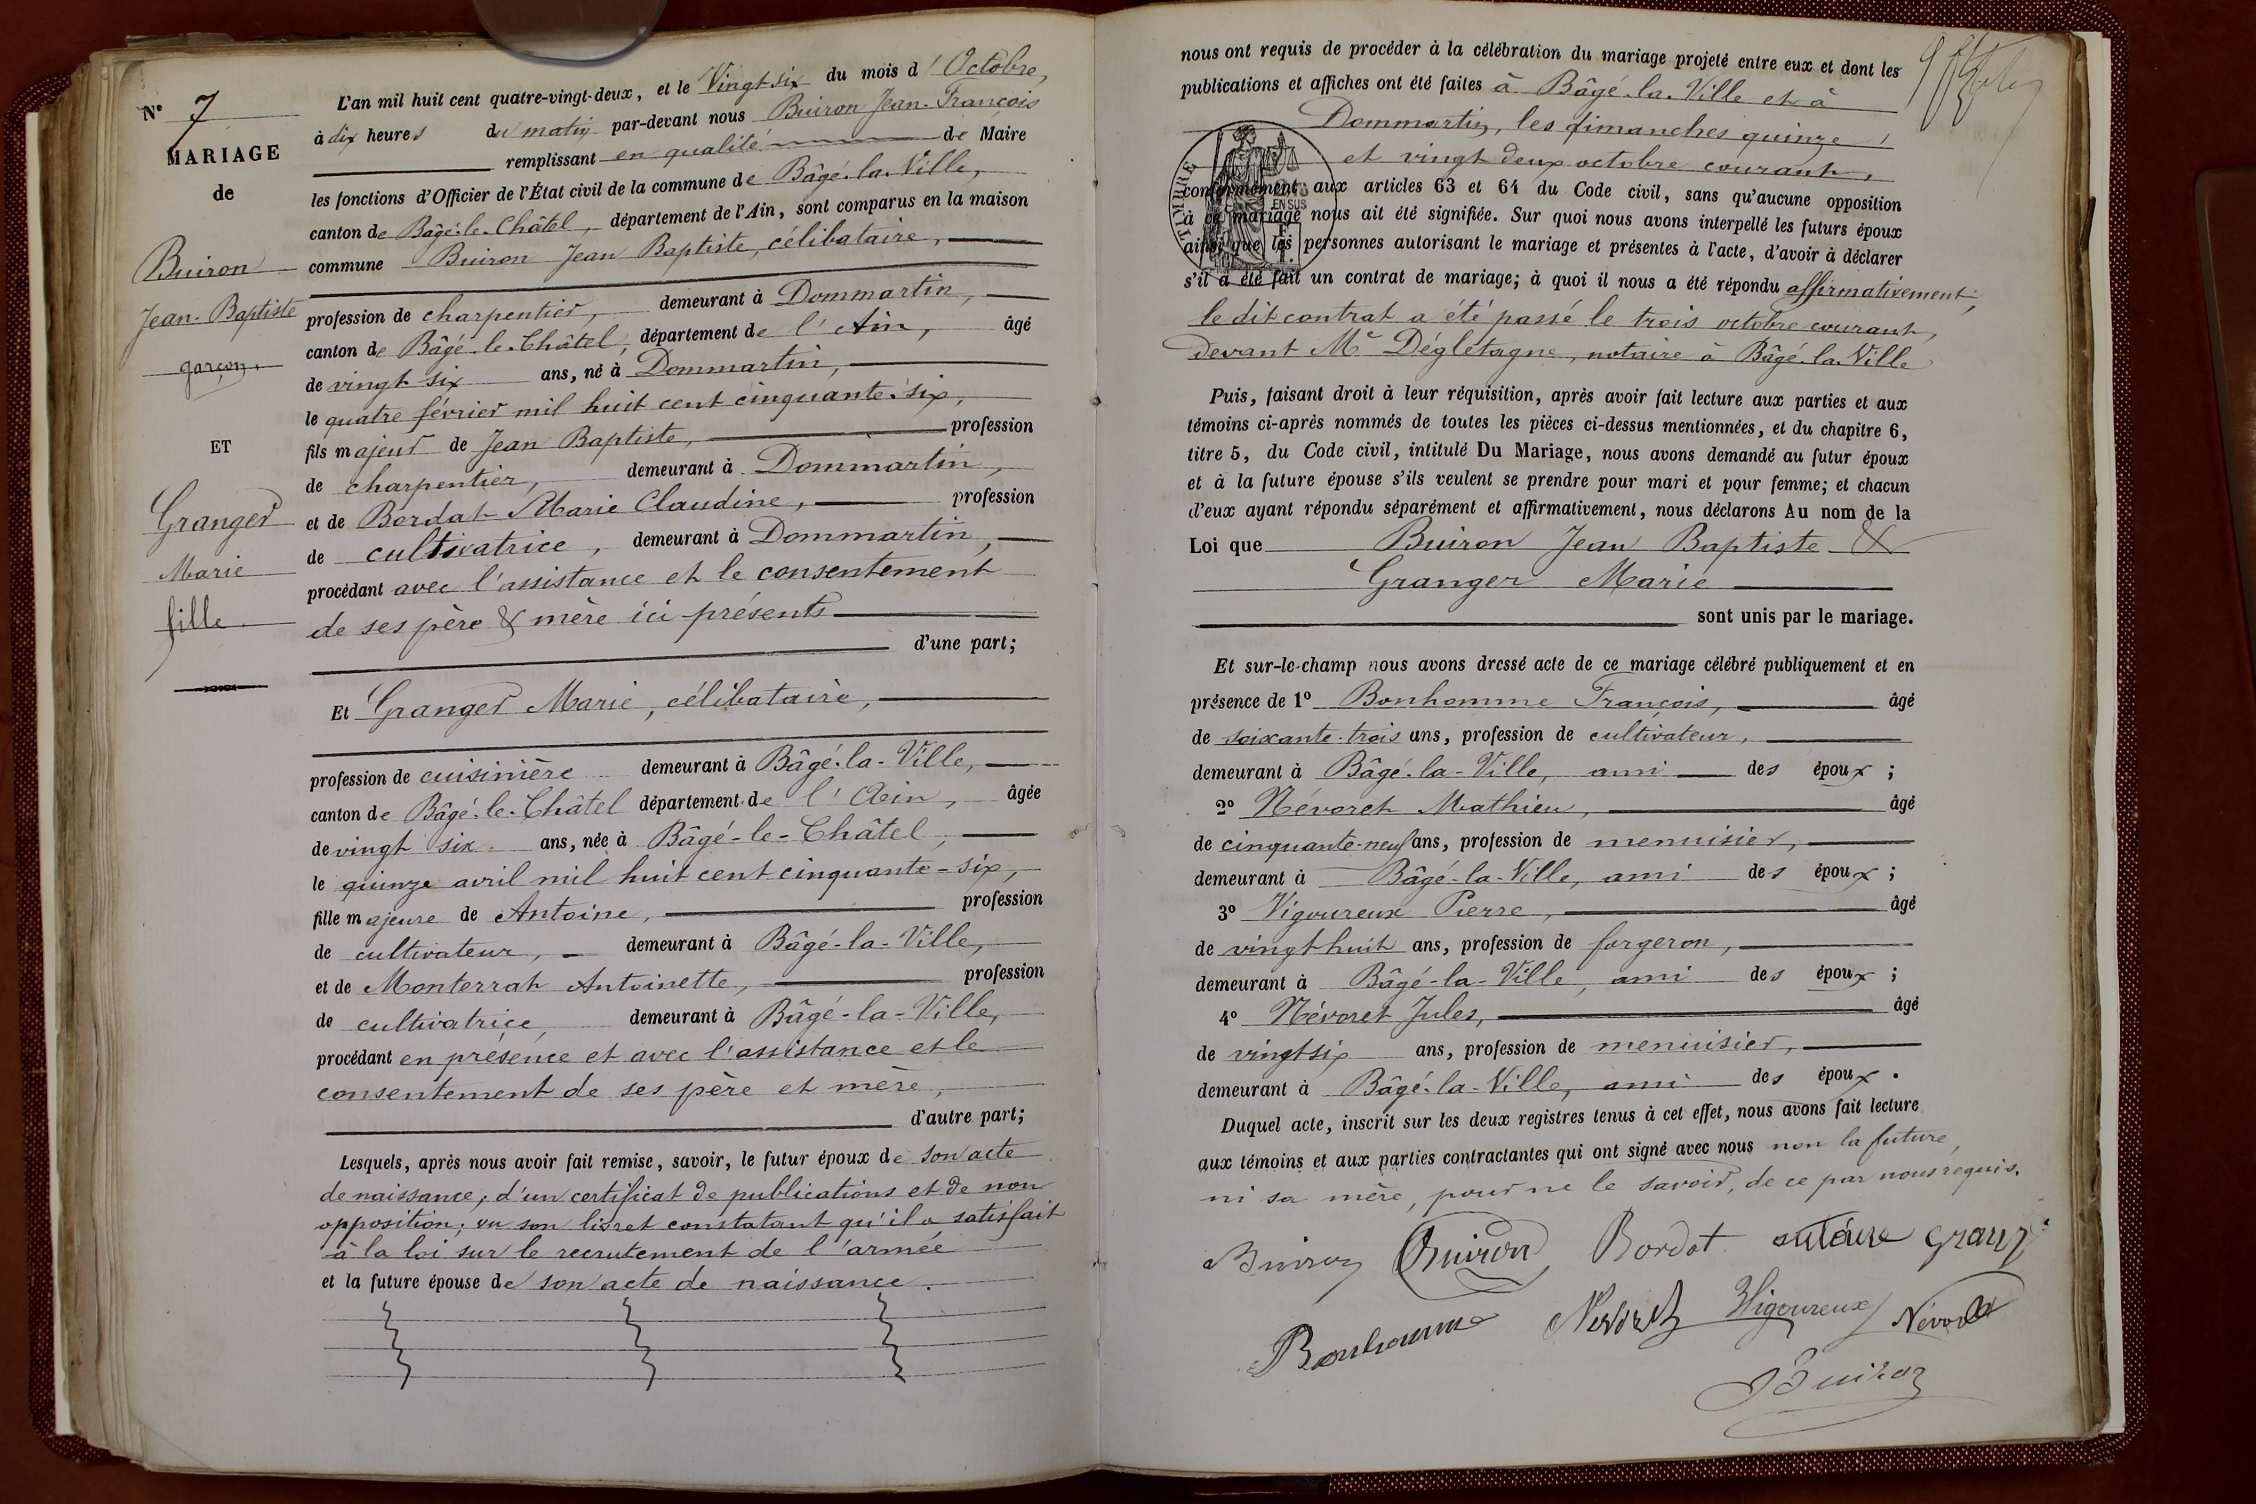 N° 7
MARIAGE
de
Buiron
Jean-Baptiste
garçon.
ET
Granger
Marie
fille
L'an mil huit cent quatre-vingt-deux, et le Vingt six du mois d'Octobre,
à dix heures du matin par-devant nous Buiron Jean-François
remplissant en qualité de Maire
les fonctions d'Officier de l'État civil de la commune de Bâgé-la-Ville,
canton de Bâgé-le-Châtel, département de l'Ain, sont comparus en la maison
commune Buiron Jean Baptiste, célibataire,
profession de charpentier, demeurant à Dommartin,
canton de Bâgé-le-Châtel, département de l'Ain, âgé
de vingt six ans, né à Dommartin,
le quatre février mil huit cent cinquante-six,
fils majeur de Jean Baptiste, profession
de charpentier, demeurant à Dommartin,
et de Bordat Marie Claudine, profession
de cultivatrice, demeurant à Dommartin,
procédant avec l'assistance et le consentement
de ses père & mère ici présents
d'une part;
Et Granger Marie, célibataire,
profession de cuisinière demeurant à Bâgé-la-Ville,
canton de Bâgé-le-Châtel département de l'Ain, âgée
de vingt six ans, née à Bâgé-le-Châtel,
le quinze avril mil huit cent cinquante-six,
fille majeure de Antoine, profession
de cultivateur, demeurant à Bâgé-la-Ville,
et de Monterrat Antoinette, profession
de cultivatrice, demeurant à Bâgé-la-Ville,
procédant en présence et avec l'assistance et le
consentement de ses père et mère,
d'autre part;
Lesquels, après nous avoir fait remise, savoir, le futur époux de son acte
de naissance, d'un certificat de publications et de non
opposition; vu son livret constatant qu'il a satisfait
à la loi sur le recrutement de l'armée
et la future épouse de son acte de naissance.
nous ont requis de procéder à la célébration du mariage projeté entre eux et dont les
publications et affiches ont été faites à Bâgé-la-Ville et à
Dommartin, les dimanches quinze
et vingt deux octobre courant,
conformément aux articles 63 et 64 du Code civil, sans qu'aucune opposition
à ce mariage nous ait été signifiée. Sur quoi nous avons interpellé les futurs époux
ainsi que les personnes autorisant le mariage et présentes à l'acte, d'avoir à déclarer
s'il a été fait un contrat de mariage; à quoi il nous a été répondu affirmativement;
le dit contrat a été passé le trois octobre courant,
devant Me Déglétagne, notaire à Bâgé-la-Ville
TIMBRE
EN SUS
Puis, faisant droit à leur réquisition, après avoir fait lecture aux parties et aux
témoins ci-après nommés de toutes les pièces ci-dessus mentionnées, et du chapitre 6,
titre 5, du Code civil, intitulé Du Mariage, nous avons demandé au futur époux
et à la future épouse s'ils veulent se prendre pour mari et pour femme; et chacun
d'eux ayant répondu séparément et affirmativement, nous déclarons Au nom de la
Loi que Buiron Jean Baptiste &
Granger Marie
sont unis par le mariage.
Et sur-le-champ nous avons dressé acte de ce mariage célébré publiquement et en
présence de 1° Bonhomme François, âgé
de soixante-trois ans, profession de cultivateur,
demeurant à Bâgé-la-Ville, ami des époux;
2° Névoret Mathieu, âgé
de cinquante-neuf ans, profession de menuisier,
demeurant à Bâgé-la-Ville, ami des époux;
3° Vigoureux Pierre, âgé
de vingt huit ans, profession de forgeron,
demeurant à Bâgé-la-Ville, ami des époux;
4° Névoret Jules, âgé
de vingt six ans, profession de menuisier,
demeurant à Bâgé-la-Ville, ami des époux.
Duquel acte, inscrit sur les deux registres tenus à cet effet, nous avons fait lecture
aux témoins et aux parties contractantes qui ont signé avec nous non la future,
ni sa mère, pour ne le savoir, de ce par nous requis.
Buiron Buiron Bordat
Bonhomme Névoret Vigoureux Névoret
Buiron